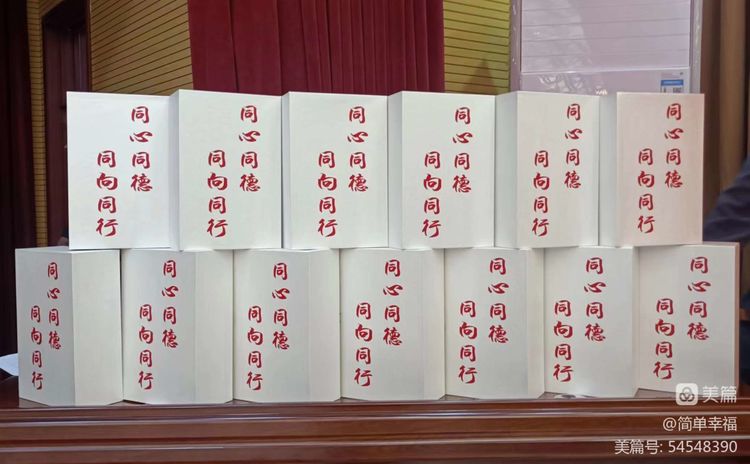 同心同德
同向同行
同心同德
同向同行
同心同德
同向同行
同心同德
同向同行
同心同德
同向同行
同心同德
同向同行
同心同德
同向同行
同心同德
同向同行
同心同德
同向同行
同心同德
同向同行
同心同德
同向同行
同心同德
同向同行
同心同德
同向同行
美篇
@简单幸福
美篇号: 54548390